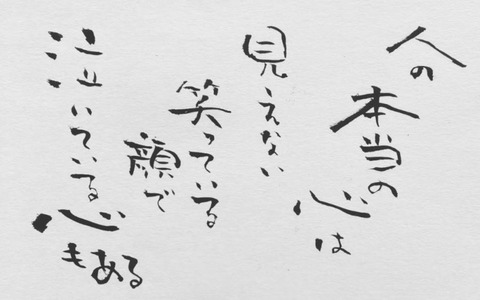 人の
本当の
心は
見えない
笑っている
顔で
泣いている
心
もある